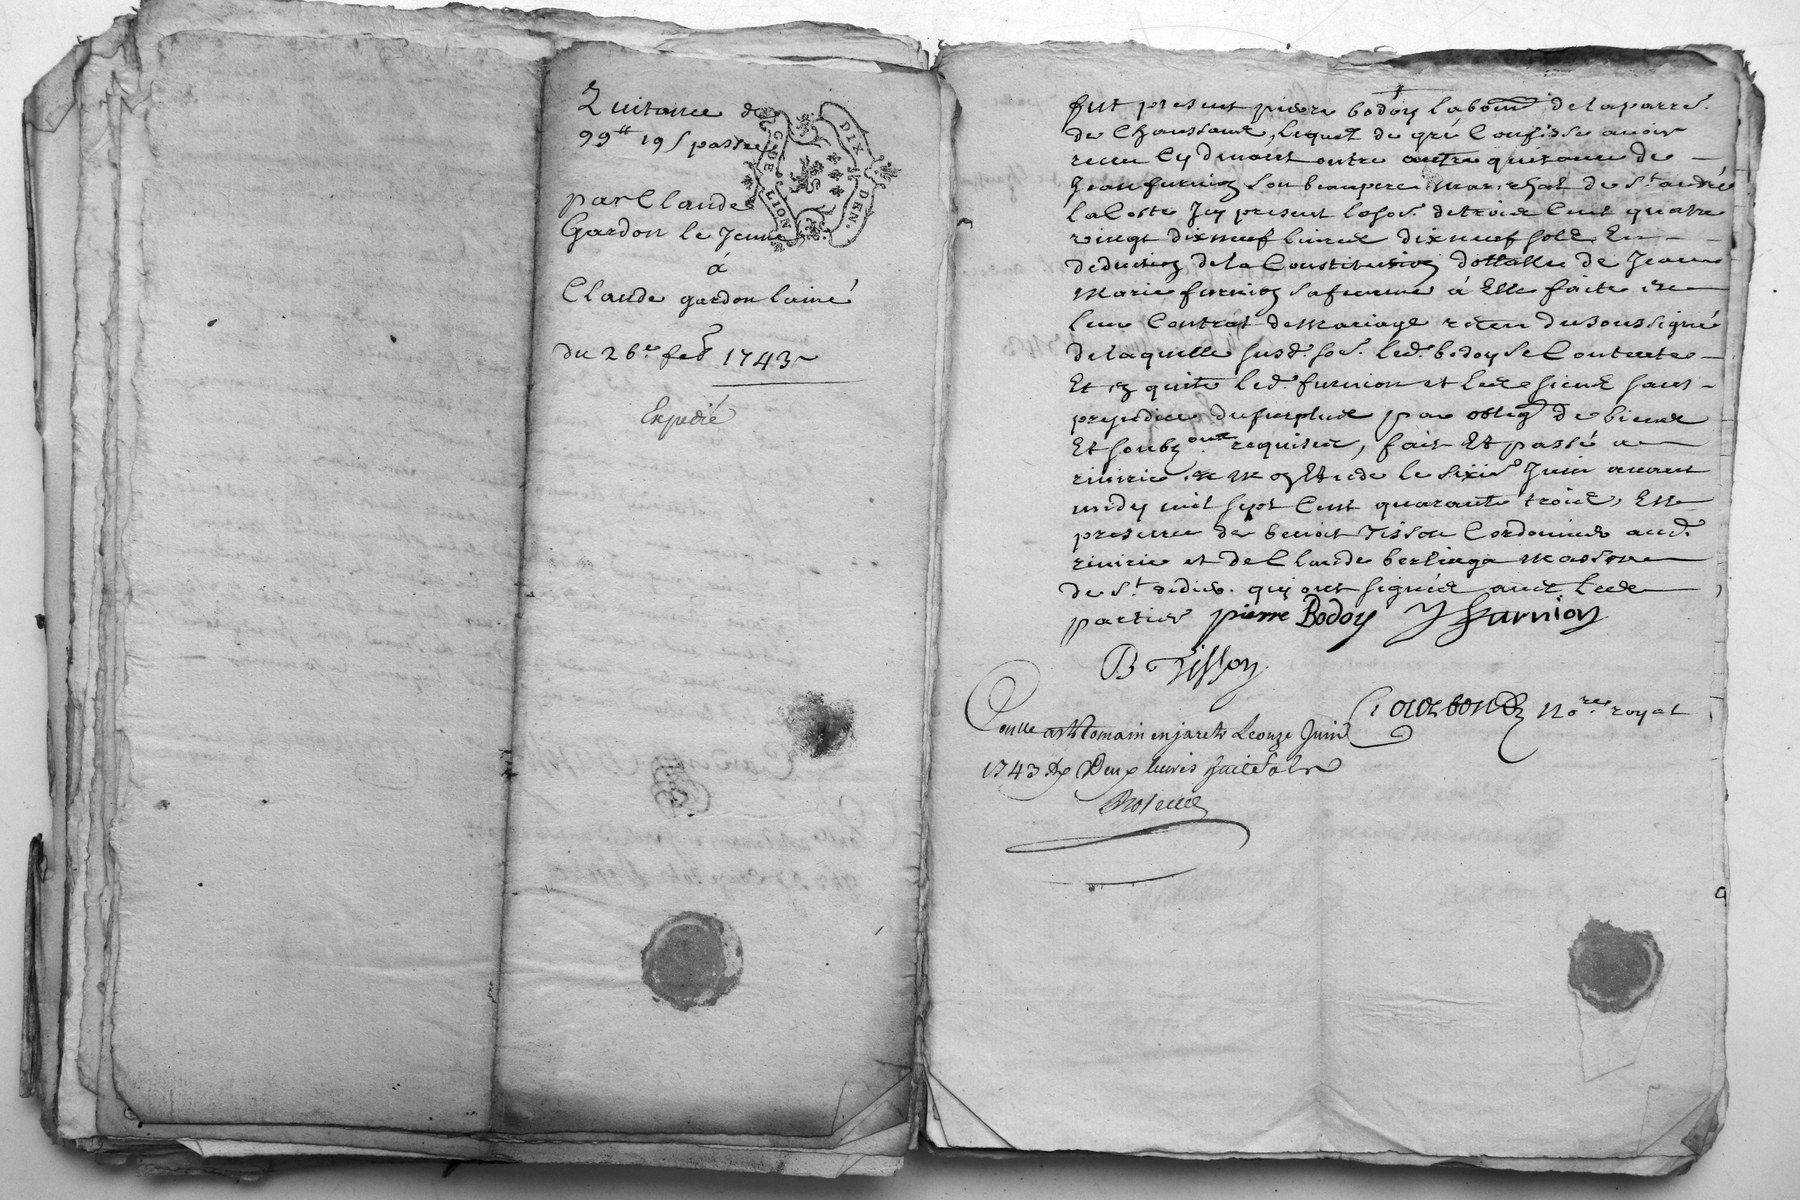 Quitance de
99tt 19s passee
par Claude
Gardon le Jeune
á
Claude gardon lainé
du 26e. feb 1743
Expedié
G. DE LION
DIX DEN.
fut present pierre bodoy labour de la parrse.
de Chaussant, lequel de gré Confesse avoir
receu Cy devant outre autre quitance de
Jean furnion son beaupere marechal de St. andré
la Coste Icy present la so. de trois Cent quatre
vingt dixneuf livres dixneuf sols En
deduction de la Constitution dottalle de Jeanne
Marie furnion sa femme á Elle faite En
leur Contrat de Mariage receu du soussigné
de laquelle susd. so. led. bodoy se Contente
Et en quite led. furnion et les siens sans
prejudice du surplus par oblig de biens
Et soubz. requises, fait Et passé a
rivirie le sixie Juin avant
midy mil sept Cent quarante trois, En
presence de benoit Tisson Cordonnier aud.
rivirie et de Claude masson
de St. didier. qui ont signés avec les
parties pierre Bodoy J furnion
B Tisson
Nore royal
Conlle a St Romain en jarets Le onze Juin
1743 Rx Deux livres huit sols